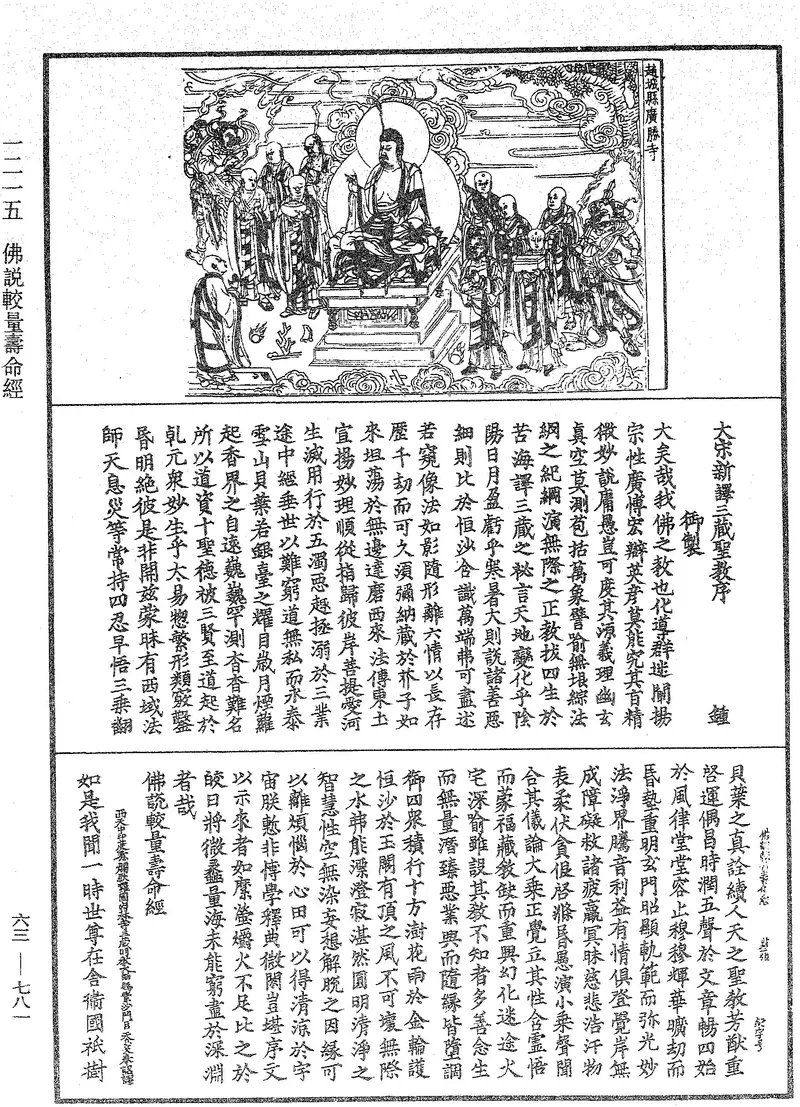 一二一五　佛説較量壽命經
趙城縣廣勝寺
大宋新譯三藏聖教序　鍾
御製
大矣哉我佛之教也化導群迷闡揚
宗性廣博宏辯英彦莫能究其旨精
微妙說庸愚豈可度其源義理幽玄
真空莫測苞括萬象譬喻無垠綜法
網之紀綱演無際之正教拔四生於
苦海譯三藏之秘言天地變化乎陰
陽日月盈虧乎寒暑大則說諸善惡
細則比於恒沙含識萬端弗可盡述
若窺像法如影隨形離六情以長存
歷千劫而可久須彌納藏於芥子如
來坦蕩於無邊達磨西來法傳東土
宣揚妙理順從指歸彼岸菩提愛河
生滅用行於五濁惡趣拯溺於三業
途中經垂世以難窮道無私而永泰
雪山貝葉若銀臺之耀目歲月煙蘿
起香界之自遠巍巍罕測杳杳難名
所以道資十聖德被三賢至道起於
乹元衆妙生乎太易惣繁形類竅鑿
昏明絶彼是非開兹蒙昧有西域法
師天息災等常持四忍早悟三乘翻
貝葉之真詮續人天之聖教芳猷重
啓運偶昌時潤五聲於文章暢四始
於風律堂堂容止穆穆輝華曠劫而
昏蟄重明玄門昭顯軌範而弥光妙
法淨界騰音利益有情俱登覺岸無
成障礙救諸疲羸冥昧慈悲浩汗物
表柔伏貪佷啓滌昏愚演小乘聲聞
合其儀論大乘正覺立其性含靈悟
而蒙福藏教缺而重興幻化迷途火
宅深喻雖設其教不知者多善念生
而無量潛臻惡業興而隨緣皆墮調
御四衆積行十方澍花雨於金輪護
恒沙於玉闕有頂之風不可壞無際
之水弗能漂澄寂湛然圓明清淨之
智慧性空無染妄想解脫之因緣可
以離煩惱於心田可以得清涼於宇
宙朕慙非博學釋典微閑豈堪序文
以示來者如縻螢爝火不足比之於
皎日將微蠡量海未能窮盡於深淵
者哉
佛說較量壽命經
如是我聞一時世尊在舍衛國祇樹
六三—七八一